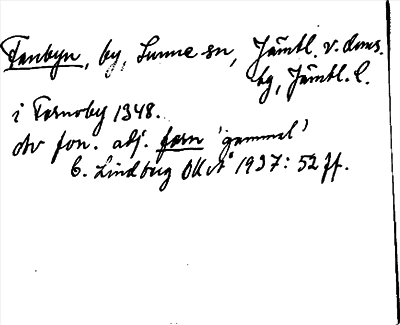 Fanbyn, by, Sunne sn, Jämtl. v. doms.
by, Jämtl. l.
i Fornoby 1348.
av fsv. adj. forn 'gammal'
C. Lindberg OUÅ 1937: 52 ff.